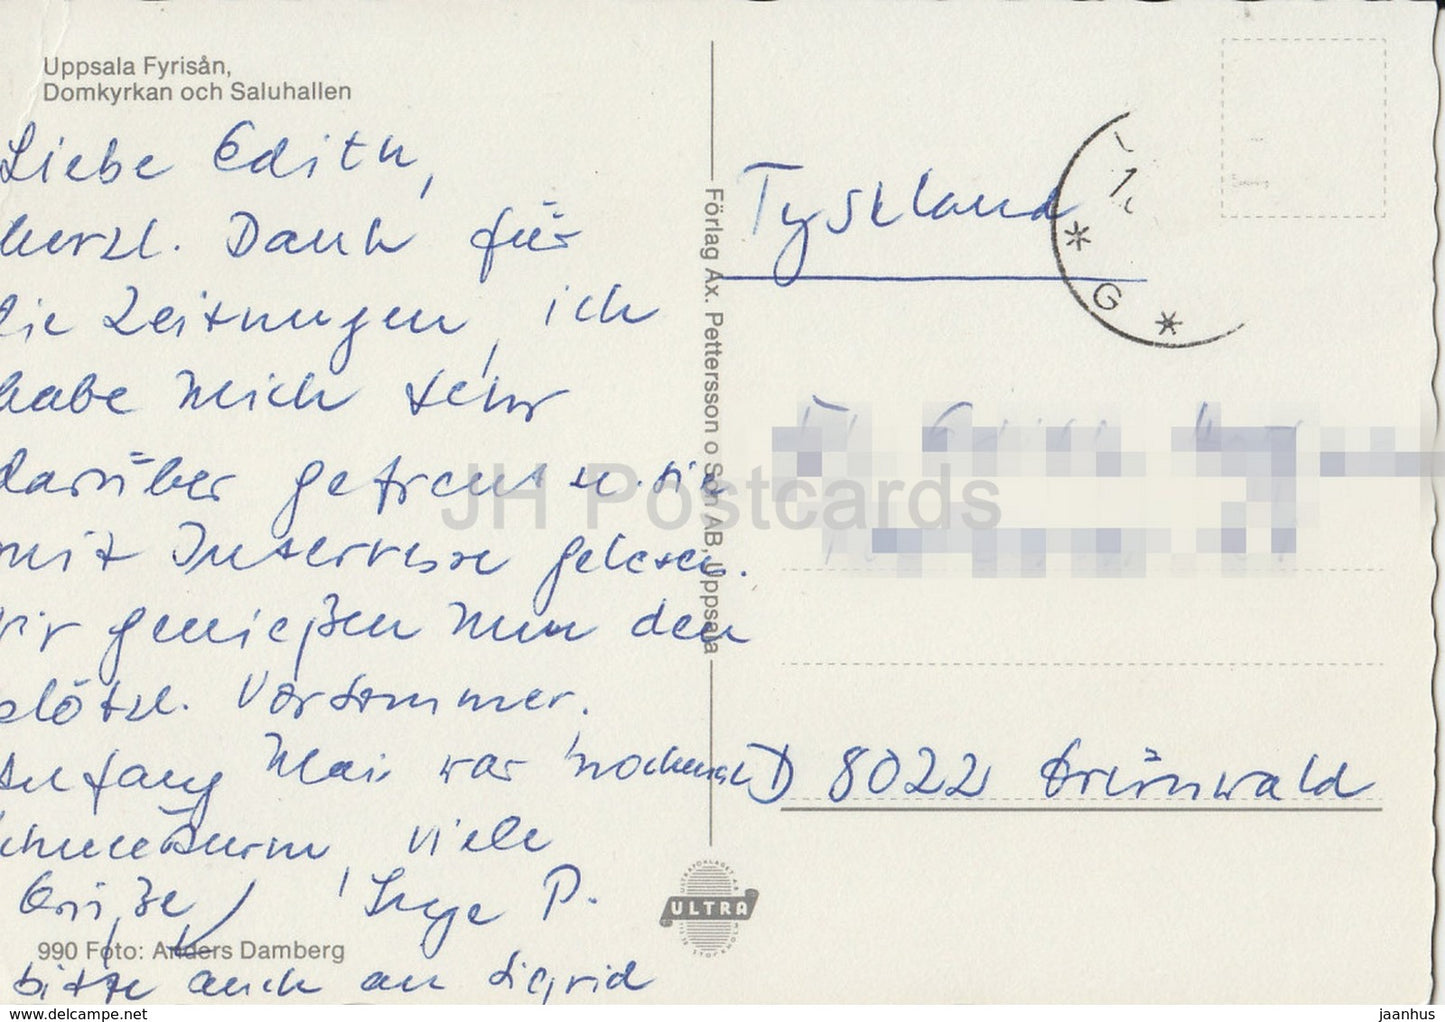 Uppsala Fyrisån,
Domkyrkan och Saluhallen
Liebe Edith,
herzl. Dank für
die Zeitungen, ich
habe mich sehr
darüber gefreut u. sie
mit Interesse gelesen.
Wir genießen nun den
plötzl. Vorsommer.
Anfang Mai war nochmal
Schneesturm, viele
Grüße, Inge P.
bitte auch an Sigrid
990 Foto: Anders Damberg
Förlag Ax. Pettersson o Son AB, Uppsala
ULTRA
Tyskland
G
D 8022 Grünwald
JH Postcards
www.delcampe.net
jaanhus